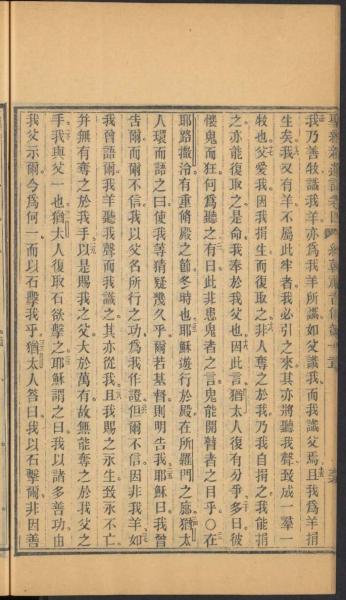 我乃善牧識我羊亦爲我羊所識如父識我而我識父焉且我爲羊捐
生矣我又有羊不屬此牢者我必引之來其亦將聽我聲致成一羣一
牧也父愛我因我捐生而復取之非人奪之於我乃我自捐之我能捐
之亦能復取之是命我奉於我父也因此言猶太人復有分爭多曰彼
懷鬼而狂何爲聽之有曰此非患鬼者之言鬼能開瞽者之目乎〇在
耶路撒冷有重脩殿之節冬時也耶穌遊行於殿在所羅門之廊猶太
人環而語之曰使我等猜疑幾久乎爾若基督則明告我耶穌曰我曾
告爾而爾不信我以父名所行之功爲我作證但爾不信因非我羊如
我曾語爾我羊聽我聲而我識之其亦從我且我賜之永生致永不亡
并無有奪之於我手以是賜我之父大於萬有故無能奪之於我父之
手我與父一也猶太人復取石欲擊之耶穌謂之曰我以諸多善功由
我父示爾今爲何一而以石擊我乎猶太人答曰我以石擊爾非因善